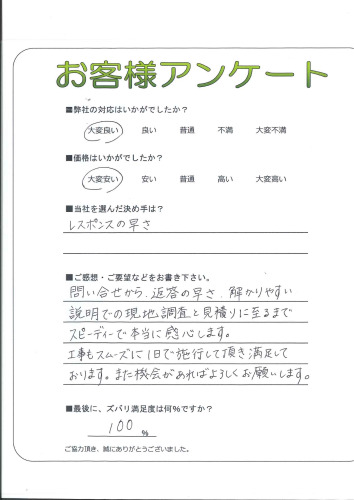 お客様アンケート
■弊社の対応はいかがでしたか？
大変良い 良い 普通 不満 大変不満
■価格はいかがでしたか？
大変安い 安い 普通 高い 大変高い
■当社を選んだ決め手は？
レスポンスの早さ
■ご感想・ご要望などをお書き下さい。
問い合せから、返答の早さ、解かりやすい
説明での現地調査と見積りに至るまで
スピーディーで本当に感心します。
工事もスムーズに1日で施行して頂き満足して
おります。また機会があればよろしくお願いします。
■最後に、ズバリ満足度は何%ですか？
100 %
ご協力頂き、誠にありがとうございました。